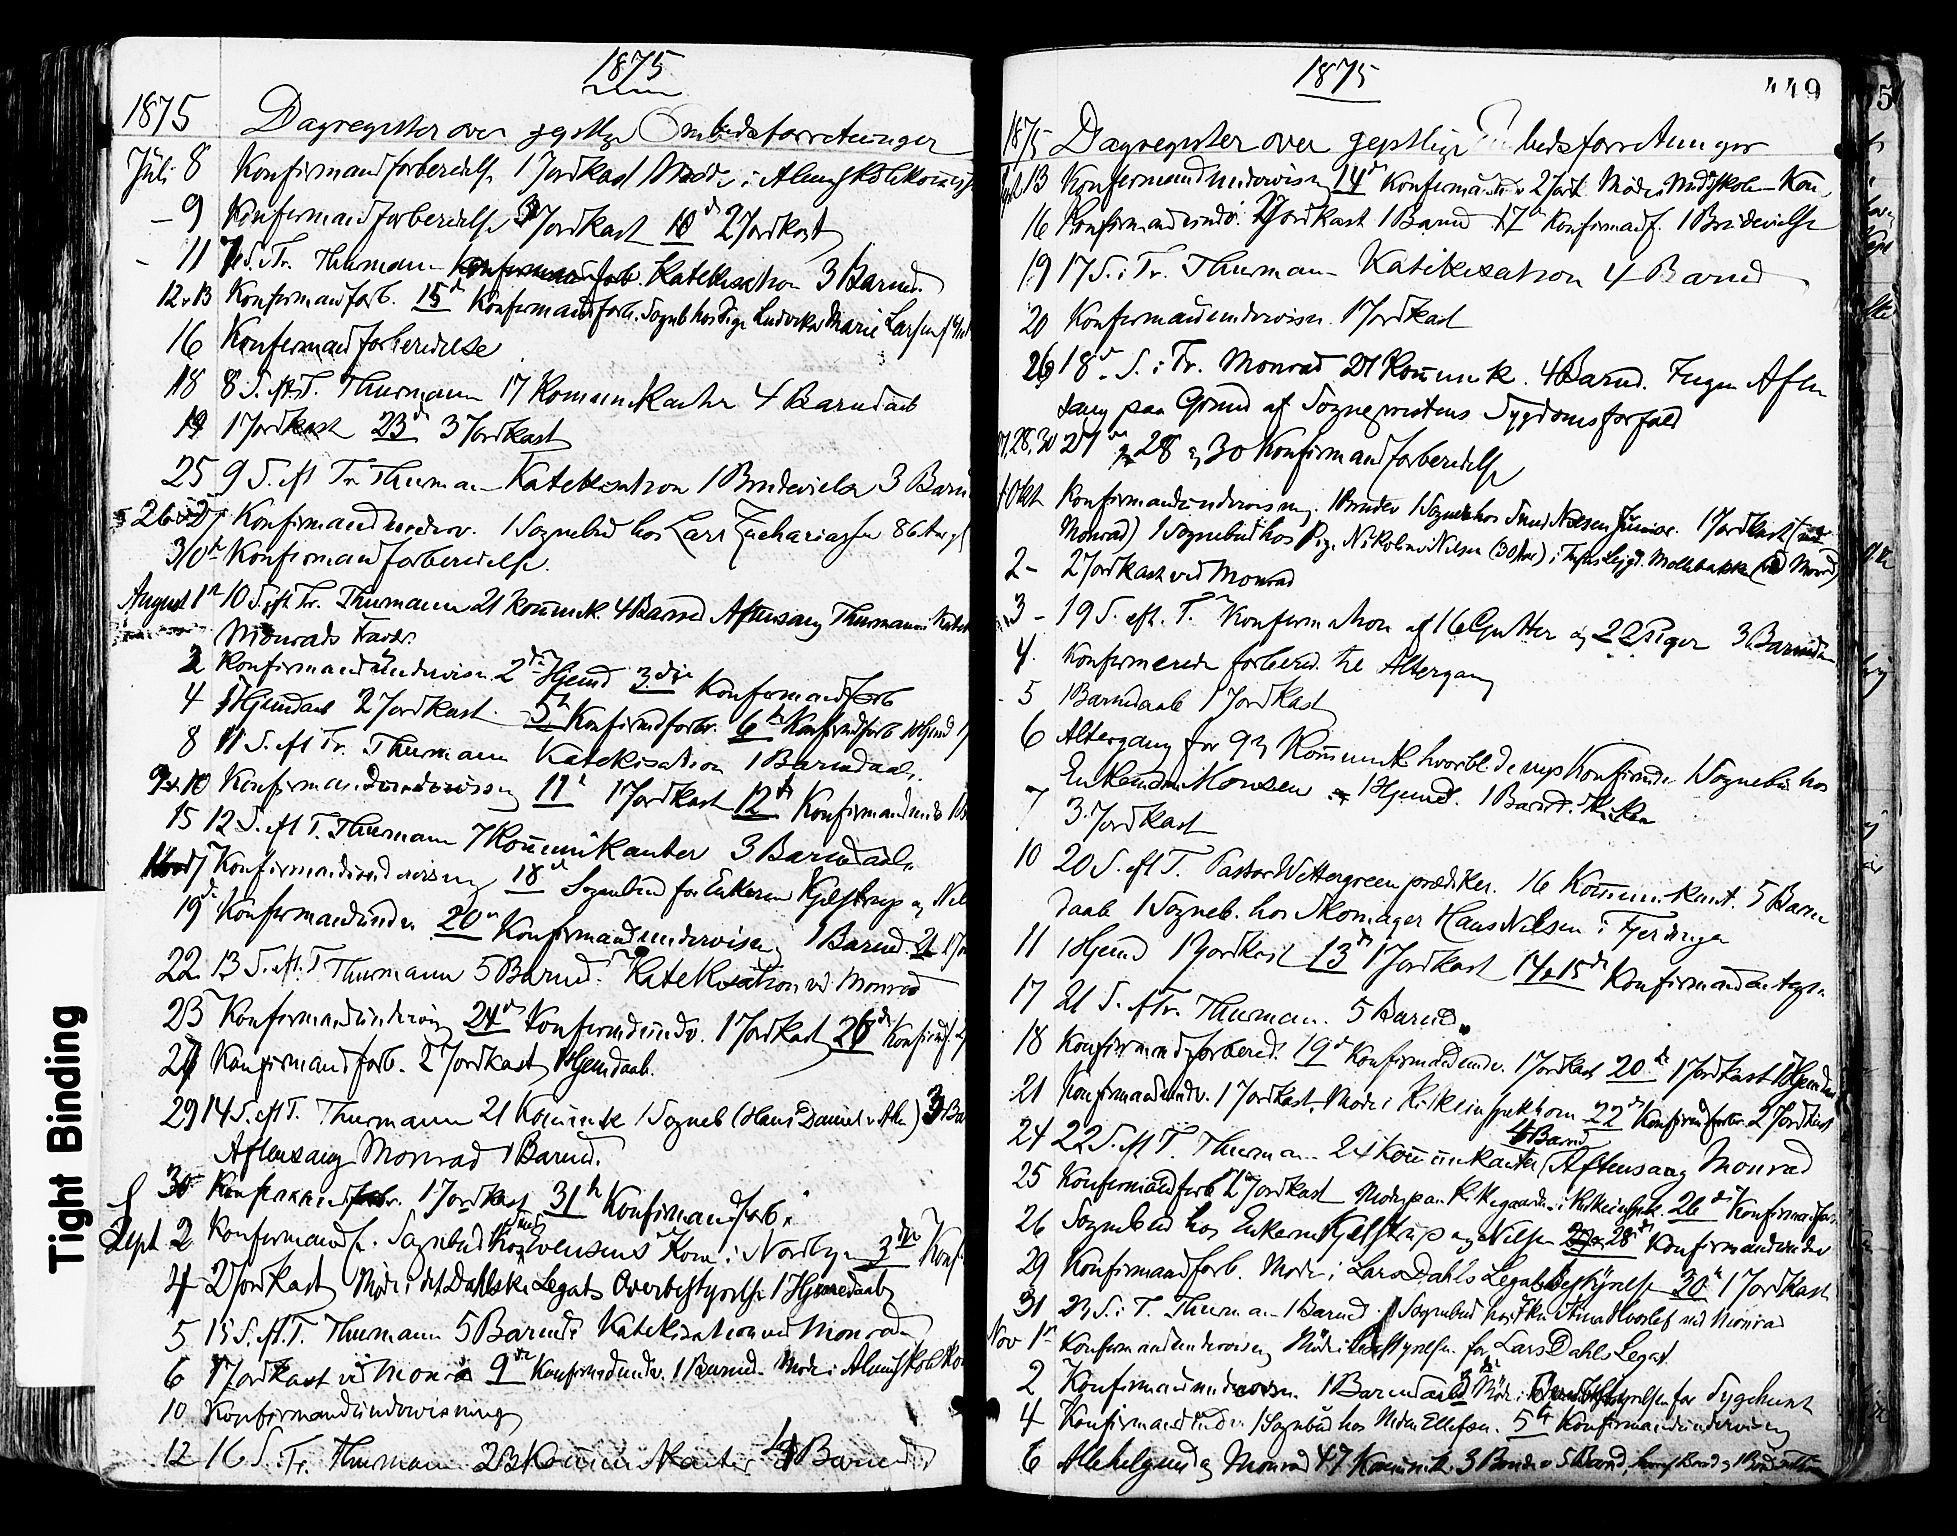 1875
1875 Dagregister over geistlige Embedsforretninger
Juli 8 Konfirmandforberedelse 1 Jordkast Møde i Almuskolekommiss
- 9 Konfirmandforberedelse 3 Jordkast 10de 2 Jordkast
- 11 7 S. i Tr. Thurmann Katekisation 3 Barnd.
12 & 13 Konfirmandforb. 15d Konfirmandforb. Sogneb hos Pige Ludvikka Marie Larsen
16 Konfirmandforberedelse
18 8 S. eft. T. Thurmann 17 Kommunikanter 4 Barndaab
19 1 Jordkast 23d 3 Jordkast
25 9 S. eft Tr Thurman Katekisation 1 Brudevielse 3 Barn
26 & 27 Konfirmandunderv. 1 Sognebud hos Lars Zachariasen 86 Aar gl
30te Konfirmandforberedelse.
August 1ste 10 S. eft Tr. Thurmann 21 Kommunik. 4 Barnd Aftensang Thurmann
Monrads Fravær.
2 Konfirmandundervisn. 2den Hjemd 3die Konfirmandforb
4 1 Hjemdaab 2 Jordkast. 5te Konfirmdforbr. 6te Konfirmdforb 1 Hjemd
8 11 S. eft Tr. Thurmann Katekisation 1 Barndaab.
9 & 10 Konfirmandundervisning 11te 1 Jordkast 12te Konfirmandund
15 12 S. eft T. Thurmann 7 Kommunikanter 3 Barndaab.
17 Konfirmandundervisning 18d Sognebud for Enkerne Kjelstrup og Nil
19d Konfirmandunder. 20de Konfirmandundervisning 1 Barnd. 21
22 13 S. eft. T Thurmann 5 Barnd. Katekisation ved Monrad
23 Konfirmandunderving 24de Konfirmdundv. 1 Jordkast 26de Konfirmf.
27 Konfirmandforb. 2 Jordkast 1 Hjemdaab.
29 14 S. eft T. Thurmann 21 Kommunik 1 Sogneb (Hans Daniel) 3 Ba
Aftensang Monrad 1 Barnd.
30 Konfirmandforbr. 1 Jordkast 31te Konfirmandforb.
Sept 2 Konfirmandf. Sognebud hos Svensens Kone i Nordbyen 3die Konf
4 2 Jordkast Møde i det Dahlske Legats Overbestyrelse 1 Hjemmedaab
5 15 S. eft. T. Thurmann 5 Barnd. Katekisation ved Monrad
6 1 Jordkast ved Monrad 9de Konfirmdundv. 1 Barnd. Møde i Almuskolekom
10 Konfirmandundervisning
12 16 S. Tr. Thurmann 23 Kommunikanter 4 Barnd
1875
449
1875 Dagregister over geistlige Embedsforretninger
13 Konfirmandundervisn 14de Konfirmandu 2 Jordk Møde i Middskole-Kom.
16 Konfirmandundv. 2 Jordkast 1 Barnd 17 Konfirmandf. 1 Brudevielse
19 17 S. i Tr. Thurman Katikesation 4 Barnd
20 Konfirmandundervisn. 1 Jordkast
26 18de S. i Tr. Monrad 21 Kommunik. 4 Barnd. Ingen Aften
sang paa Grund af Sogneprestens Sygdomsforfald
27, 28, 30 27de 28 og 30 Konfirmandforberedelse
1 Okt Konfirmandundervisning. 1 Brudev 1 Sogneb hos Nilsen 1 Jordkast (ved
Monrad) 1 Sognebud hos Pige Nikoline Nilsen (30 Aar) i Møllebakken (ved Monrad)
2 - 2 Jordkast ved Monrad
3 - 19 S. eft. T. Konfirmation af 16 Gutter og 22 Piger 3 Barnd
4. Konfirmerede forbered. til Altergang
5 1 Barndaab 1 Jordkast
6 Altergang for 93 Kommunik hvoribl. de nys Konfirmde 1 Sognebu hos
Enkemdm Monsen 1 Hjemd. 1 Barnd. i Kirken
7 3 Jordkast
10 20 S. eft T. Pastor Wettergreen prædiker. 16 Kommunikant. 5 Barn
daab 1 Sogneb. hos Skomager Hans Nilsen i Fjerdingen
11 1 Hjemd 1 Jordkast 13de 1 Jordkast 14 & 15de Konfirmandantegn.
17 21 S. eft Tr. Thurman. 5 Barnd.
18 Konfirmandforbered. 19de Konfirmandundv. 1 Jordkast 20de 1 Jordkast 1 Hjemdaab
21 Konfirmandundv. 1 Jordkast. Møde i Kirkeinspektion 22de Konfirmdforbr. 2 Jordkast
24 22 S. eft T. Thurman. 24 Kommunikanter 4 Barnd Aftensang Monrad
25 Konfirmandforb 2 Jordkast Møde paa Kirkegaarden i Kirkeinspek. 26de Konfirmandfor.
26 Sognebud hos Enkerne Kjelstrup og Nilsen 28de Konfirmandunder
29 Konfirmandforb. Møde i Lars Dahls Legatsbestyrelse 30te 1 Jordkast
31 23 S. i T. Thurman 1 Barnd. 1 Sognebud hos ved Monrad
Nov 1ste Konfirmandundervisning Møde i Bestyrelsen for Lars Dahls Legat.
2 Konfirmandundervisn. 1 Barndaab Møde i for Sygehuset
4 Konfirmandunder. 1 Sognbud hos Ellefsen. 5te Konfirmandundervisning
6 Allehelgensdag Monrad 47 Kommunik. 3 Brudev 5 Barnd,
Tight Binding